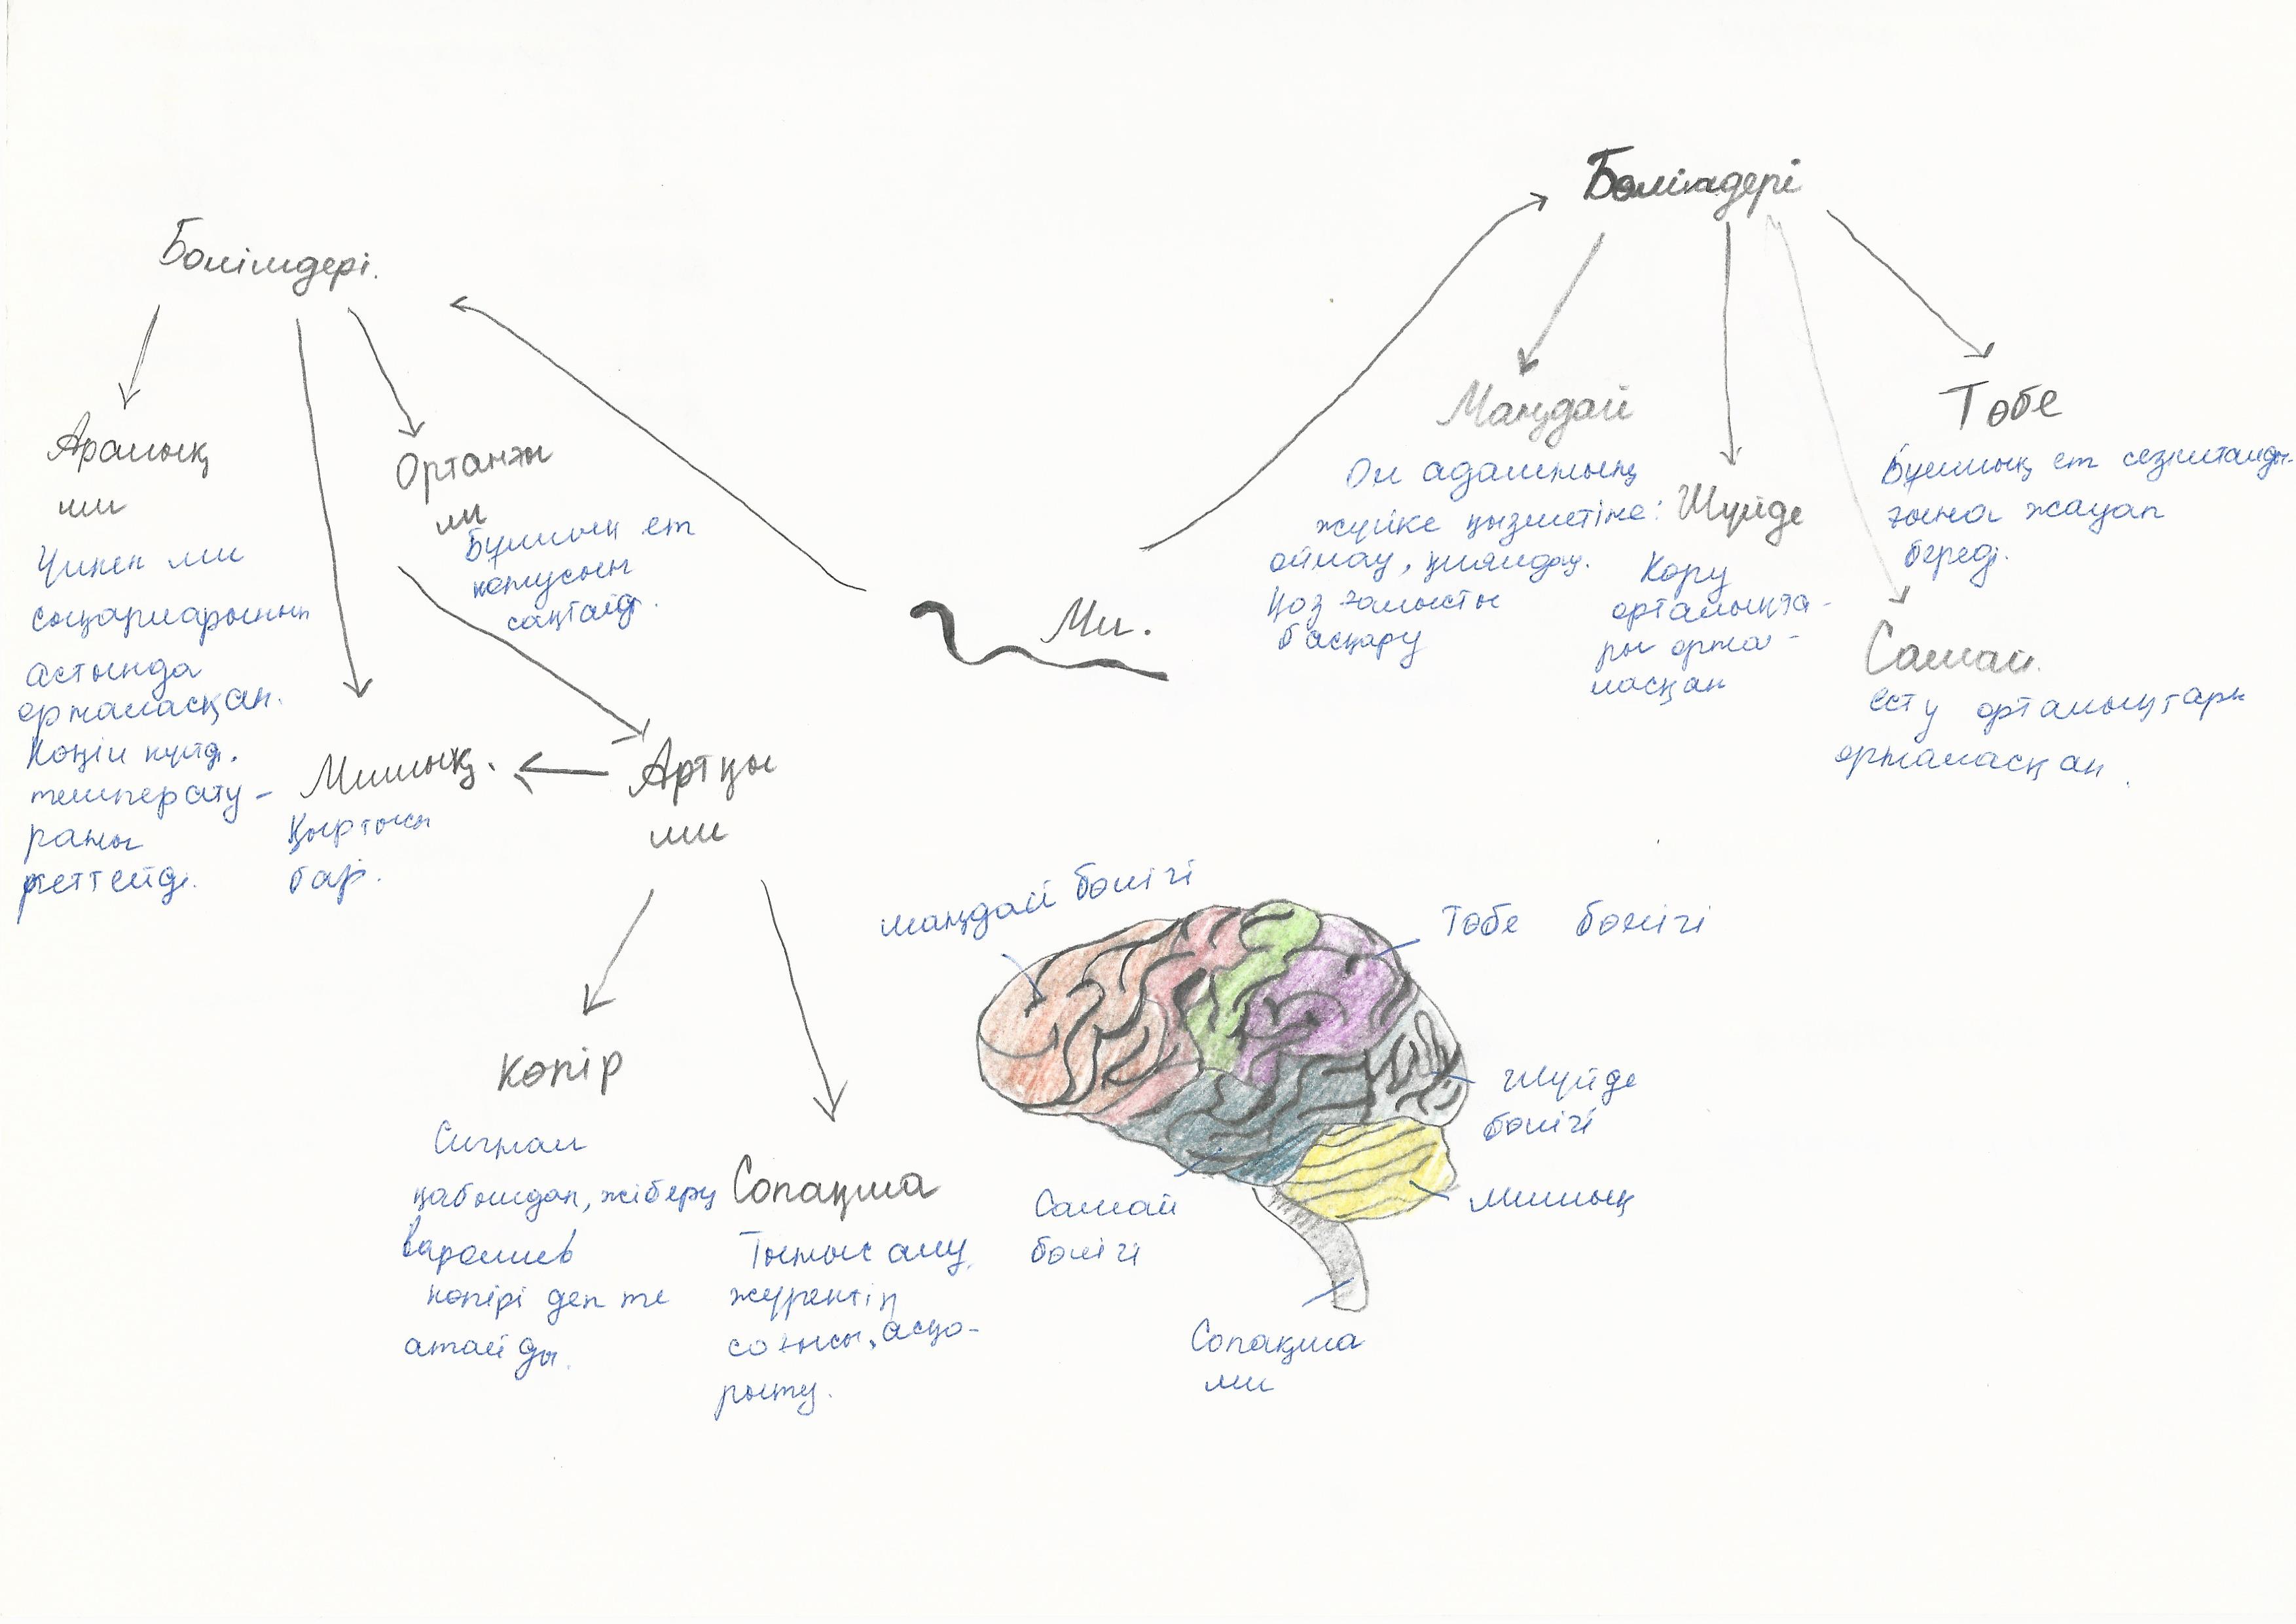 Бөлімдері.
Аралық
ми
Үлкен ми
сыңарларының
астында
орналасқан.
Көңіл күйді,
температу-
раны
реттейді.
Ортаңғы
ми
Бұлшық ет
қатусын
сақтайд.
Мишық.
Қыртысы
бар.
Артқы
ми
Көпір
Сигнал
қабылдап, жіберу
варолиев
көпірі деп те
атайды.
Сопақша
Тыныс алу,
жүректің
соғысы, асқо-
рыту.
Ми.
Бөлімдері
Маңдай
Ол адамның
жүйке қызметіне:
ойлау, қиялдау.
Қозғалысты
басқару
Шүйде
Көру
орталықта-
ры орна-
ласқан
Төбе
Бұлшық ет сезімталды-
ғына жауап
береді.
Самай.
есту орталықтары
орналасқан.
маңдай бөлігі
Төбе бөлігі
Шүйде
бөлігі
мишық
Самай
бөлігі
Сопақша
ми